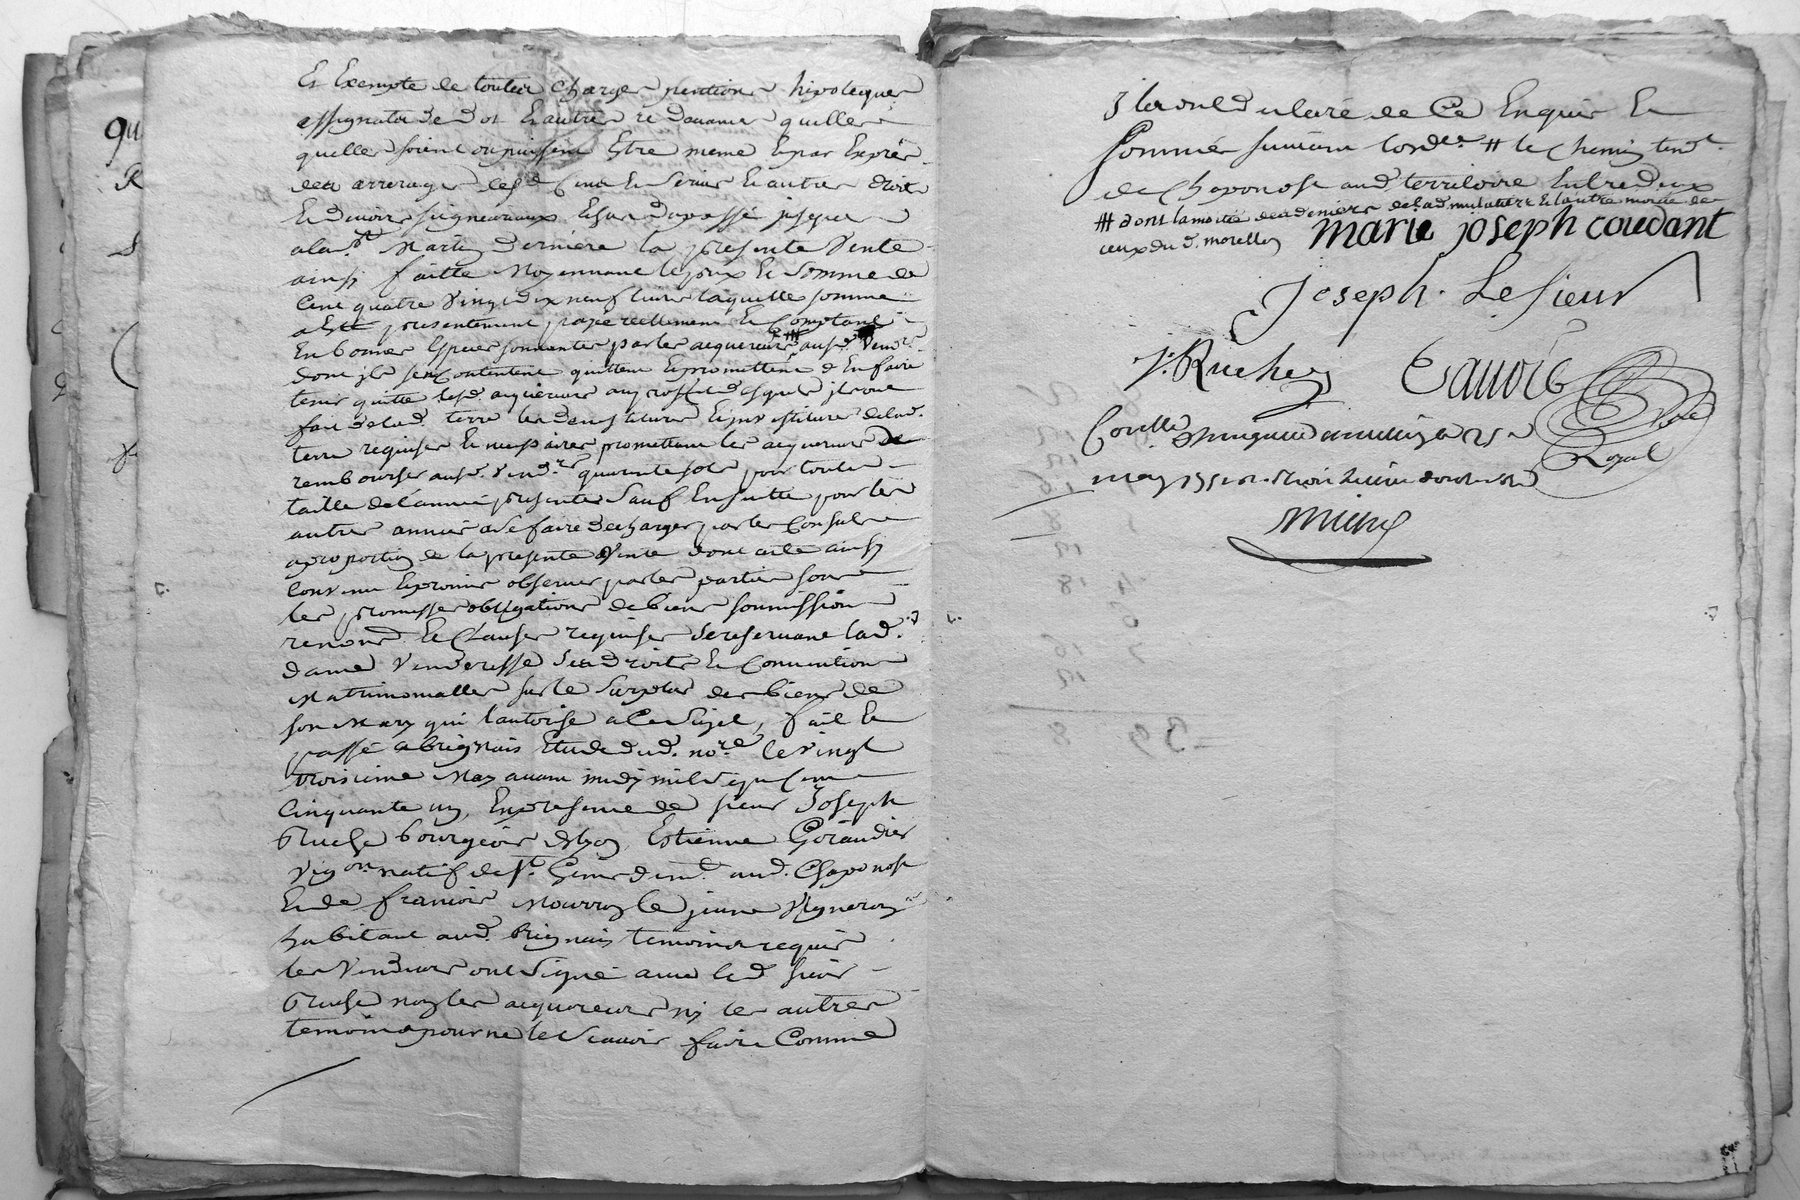 Et Exempte de toutes Charges pentions hipotecques
assignats de dot Et autres redevances quelles
quelles soient ou puissent Estre meme Et par Exprès
des arrerages desd. Cens Et servis Et autres droits
Et devoirs seigneuriaux Et par du passé jusques
a la St. Martin derniere la presente vente
ainsy faitte Moyennant le prix Et Somme de
Cent quatre vingt dix neuf livres laquelle somme
a Esté presentement payée reellement Et Comptant
En bonnes Especes sonnantes par les acquereurs ## ausd. Vend.rs
dont jls se Contentent quittent Et promettent d'En faire
tenir quitte lesd. acquereurs au proffit desquels jls ont
fait de lad. terre les devestitures Et investitures de lad.
terre requises Et necessaires promettant les acquereurs de
rembourser ausd. Vend.rs quarante sols pour toutes
tailles de l'année presente Sauf Ensuitte pour les
autres années a se faire decharger par les Consuls
a proportion de la presente Vente dont acte ainsy
Convenu Et promis observer par les parties sous
les promesses obligations de biens soumissions
renond. Et Clauses requises se reservant lad.
dame Venderesse ses droits Et Conventions
Matrimonialles sur le Surplus des biens de
son Mary qui l'autorise a Ce Sujet, fait Et
passé a Brignais Etude dud. no.re le vingt
troisieme May avant midy mil sept Cent
Cinquante un, En presence de sieur Joseph
Ruche bourgeois de Lyon, Estienne Gorandier
Vig.on natif de St. Genis dem.t aud. Chaponost
Et de francois Mourron le jeune Vigneron
habitant aud. Brignais temoins requis
les Vendeurs ont signé avec led. sieur
Ruche non les acquereurs ny les autres
temoins pour ne le Scavoir faire Comme
jls ont declaré de Ce Enquis Et
Sommés suivant l'ord.ce # le Chemin tend.t
de Chaponost aud. territoire Entre deux
### dont la moitié des deniers de lad. mulatiere Et l'autre moitié de
ceux du d. morellon marie joseph coudant
Joseph. Lesieur
J. Ruche
no.re
Royal